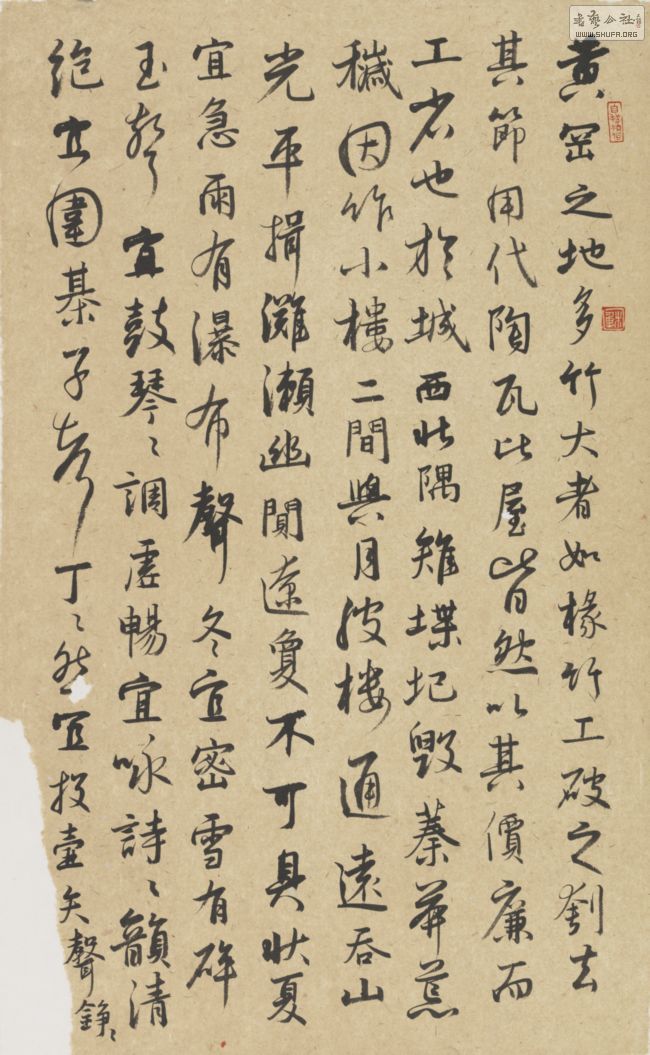 黄岡之地多竹大者如椽竹工破之刳去
其節用代陶瓦比屋皆然以其價廉而
工省也於城西北隅雉堞圮毀蓁莽荒
穢因作小樓二間與月波樓通遠吞山
光平挹灘瀨幽闃遼夐不可具狀夏
宜急雨有瀑布聲冬宜密雪有碎
玉聲宜鼓琴〻調虛暢宜咏詩〻韻清
絕宜圍棊子聲丁〻然宜投壺矢聲錚〻
書藝公社
WWW.SHUFA.ORG